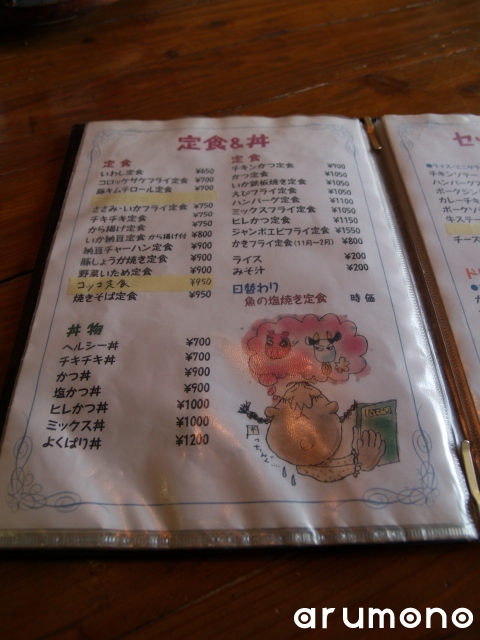 定食&丼
定食
いわし定食 ¥650
コロッケサケフライ定食 ¥700
豚キムチロール定食 ¥700
ささみ・いかフライ定食 ¥750
チキチキ定食 ¥750
から揚げ定食 ¥750
いか納豆定食 から揚げ付 ¥800
納豆チャーハン定食 ¥900
豚しょうが焼き定食 ¥900
野菜いため定食 ¥900
コッコ定食 ¥950
焼きそば定食 ¥950
丼物
ヘルシー丼 ¥700
チキチキ丼 ¥700
かつ丼 ¥900
塩かつ丼 ¥900
ヒレかつ丼 ¥1000
ミックス丼 ¥1000
よくばり丼 ¥1200
定食
チキンかつ定食 ¥900
かつ定食 ¥1050
いか鉄板焼き定食 ¥1050
えびフライ定食 ¥1050
ハンバーグ定食 ¥1100
ミックスフライ定食 ¥1050
ヒレかつ定食 ¥1150
ジャンボエビフライ定食 ¥1550
かきフライ定食(11月〜2月) ¥800
ライス ¥200
みそ汁 ¥200
日替わり
魚の塩焼き定食 時価
困っちゃう…
セッ
チキンソテー
ハンバーグス
ポークジン
カレーチキ
ポークソ
キスラー
チース
arumono